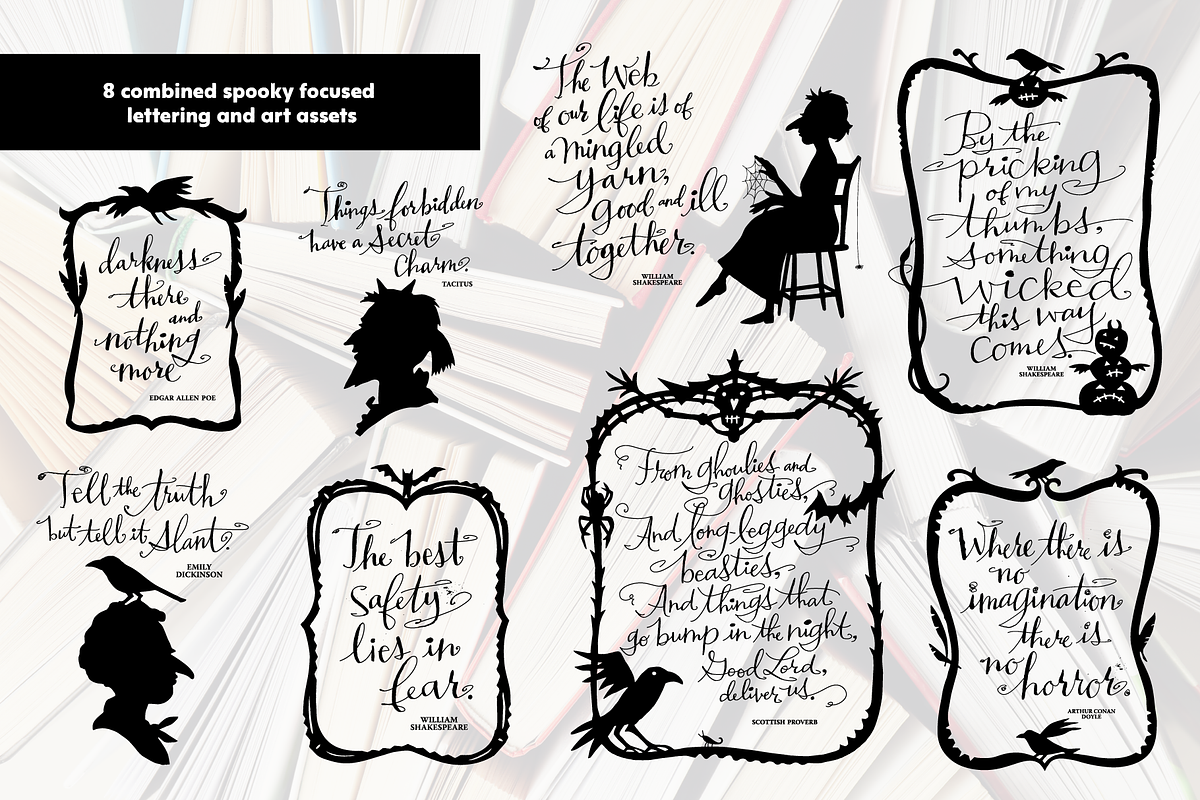 8 combined spooky focused
lettering and art assets
darkness
there
and
nothing
more
EDGAR ALLEN POE
Things forbidden
have a Secret
Charm.
TACITUS
The Web
of our life is of
a mingled
yarn,
good and ill
together.
WILLIAM
SHAKESPEARE
By the
pricking
of my
thumbs,
something
wicked
this way
Comes.
WILLIAM
SHAKESPEARE
Tell the truth
but tell it Slant.
EMILY
DICKINSON
The best
Safety
lies in
fear.
WILLIAM
SHAKESPEARE
From ghoulies and
ghosties,
And long-leggedy
beasties,
And things that
go bump in the night,
Good Lord,
deliver us.
SCOTTISH PROVERB
Where there is
no
imagination
there is
no horror.
ARTHUR CONAN
DOYLE